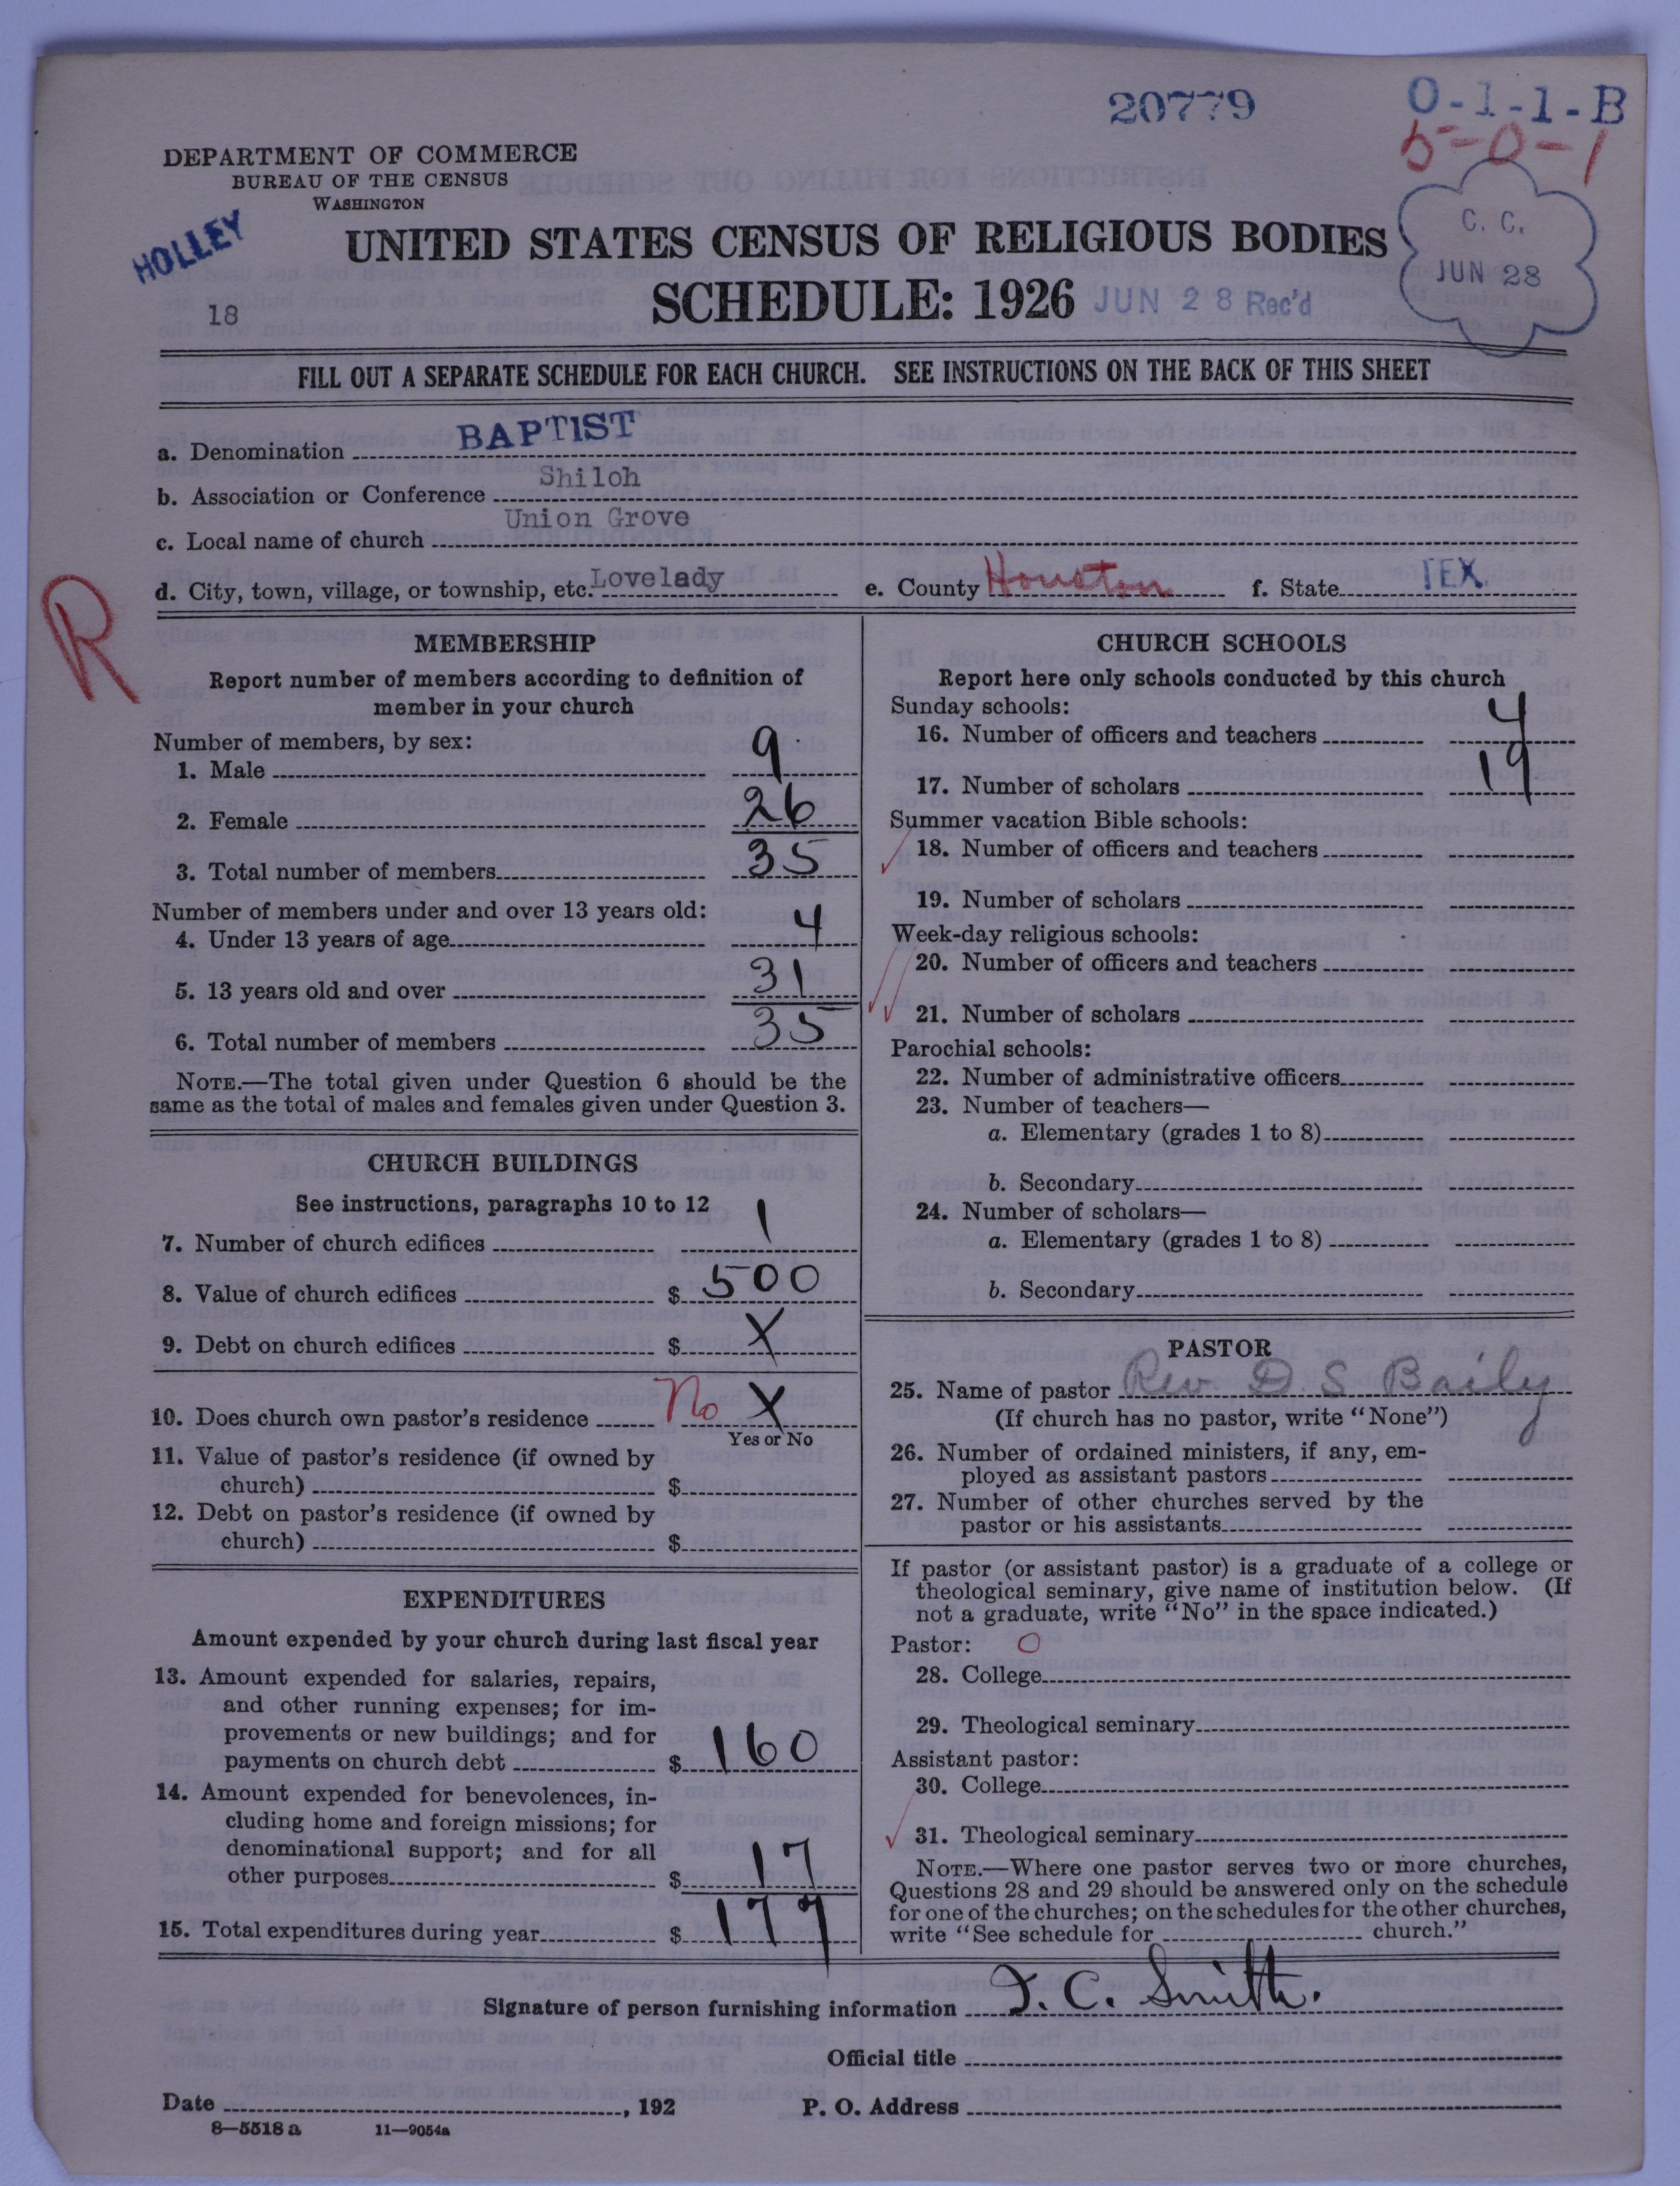 20779
O-1-1-B
5-0-1
DEPARTMENT OF COMMERCE
BUREAU OF THE CENSUS
WASHINGTON
HOLLEY
18
UNITED STATES CENSUS OF RELIGIOUS BODIES
SCHEDULE: 1926 JUN 28 Rec'd
C. C.
JUN 28
FILL OUT A SEPARATE SCHEDULE FOR EACH CHURCH. SEE INSTRUCTIONS ON THE BACK OF THIS SHEET
a. Denomination BAPTIST
b. Association or Conference Shiloh
c. Local name of church Union Grove
d. City, town, village, or township, etc. Lovelady e. County Houston f. State TEX.
R
MEMBERSHIP
Report number of members according to definition of
member in your church
Number of members, by sex:
1. Male 9
2. Female 26
3. Total number of members 35
Number of members under and over 13 years old:
4. Under 13 years of age 4
5. 13 years old and over 31
6. Total number of members 35
NOTE.—The total given under Question 6 should be the
same as the total of males and females given under Question 3.
CHURCH BUILDINGS
See instructions, paragraphs 10 to 12
7. Number of church edifices 1
8. Value of church edifices $ 500
9. Debt on church edifices $ X
10. Does church own pastor's residence No X
Yes or No
11. Value of pastor's residence (if owned by
church) $
12. Debt on pastor's residence (if owned by
church) $
EXPENDITURES
Amount expended by your church during last fiscal year
13. Amount expended for salaries, repairs,
and other running expenses; for im-
provements or new buildings; and for
payments on church debt $ 160
14. Amount expended for benevolences, in-
cluding home and foreign missions; for
denominational support; and for all
other purposes $ 17
15. Total expenditures during year $ 177
CHURCH SCHOOLS
Report here only schools conducted by this church
Sunday schools:
16. Number of officers and teachers 4
17. Number of scholars 19
Summer vacation Bible schools:
18. Number of officers and teachers
19. Number of scholars
Week-day religious schools:
20. Number of officers and teachers
21. Number of scholars
Parochial schools:
22. Number of administrative officers
23. Number of teachers—
a. Elementary (grades 1 to 8)
b. Secondary
24. Number of scholars—
a. Elementary (grades 1 to 8)
b. Secondary
PASTOR
25. Name of pastor Rev. D S Baily
(If church has no pastor, write "None")
26. Number of ordained ministers, if any, em-
ployed as assistant pastors
27. Number of other churches served by the
pastor or his assistants
If pastor (or assistant pastor) is a graduate of a college or
theological seminary, give name of institution below. (If
not a graduate, write "No" in the space indicated.)
Pastor: O
28. College
29. Theological seminary
Assistant pastor:
30. College
31. Theological seminary
NOTE.—Where one pastor serves two or more churches,
Questions 28 and 29 should be answered only on the schedule
for one of the churches; on the schedules for the other churches,
write "See schedule for church."
Signature of person furnishing information J. C. Smith.
Official title
Date , 192 P. O. Address
8—5518 a 11—9054a